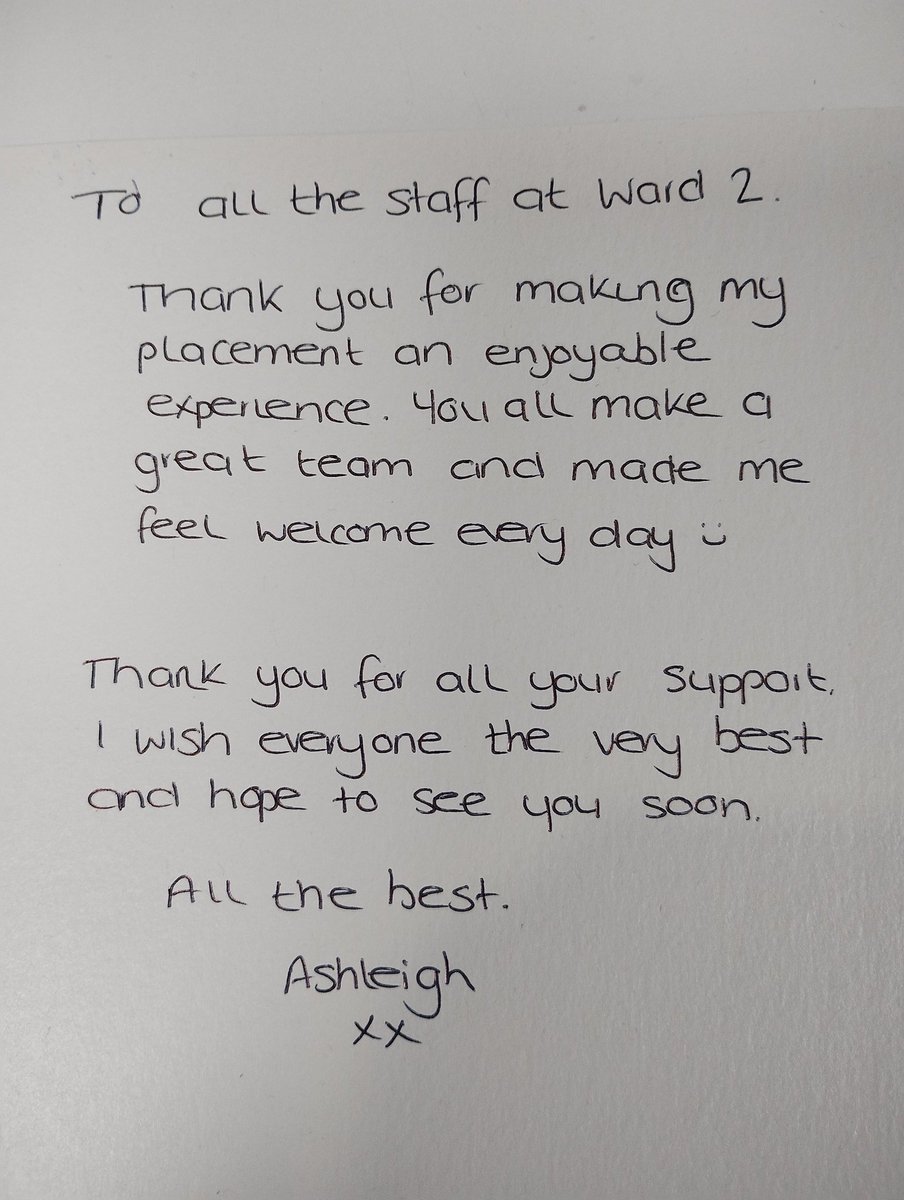 To all the staff at Ward 2.
Thank you for making my
placement an enjoyable
experience. You all make a
great team and made me
feel welcome every day :)
Thank you for all your support.
I wish everyone the very best
and hope to see you soon.
All the best.
Ashleigh
xx